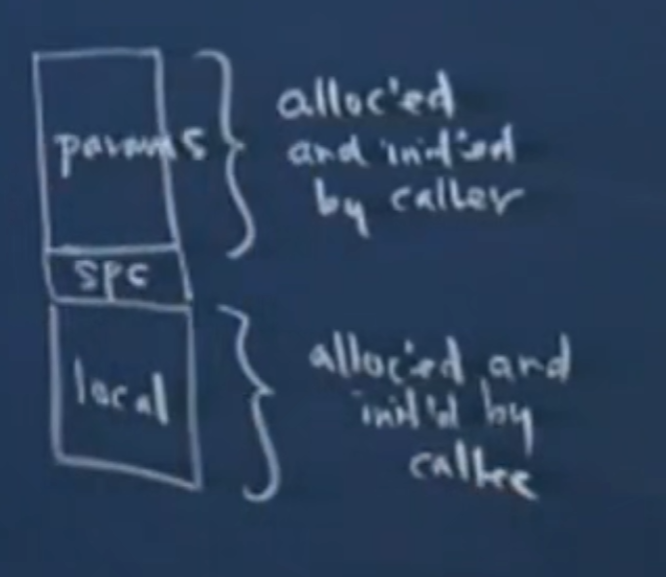 params
alloc'ed
and init'ed
by caller
spc
local
alloc'ed and
init'd by
callee